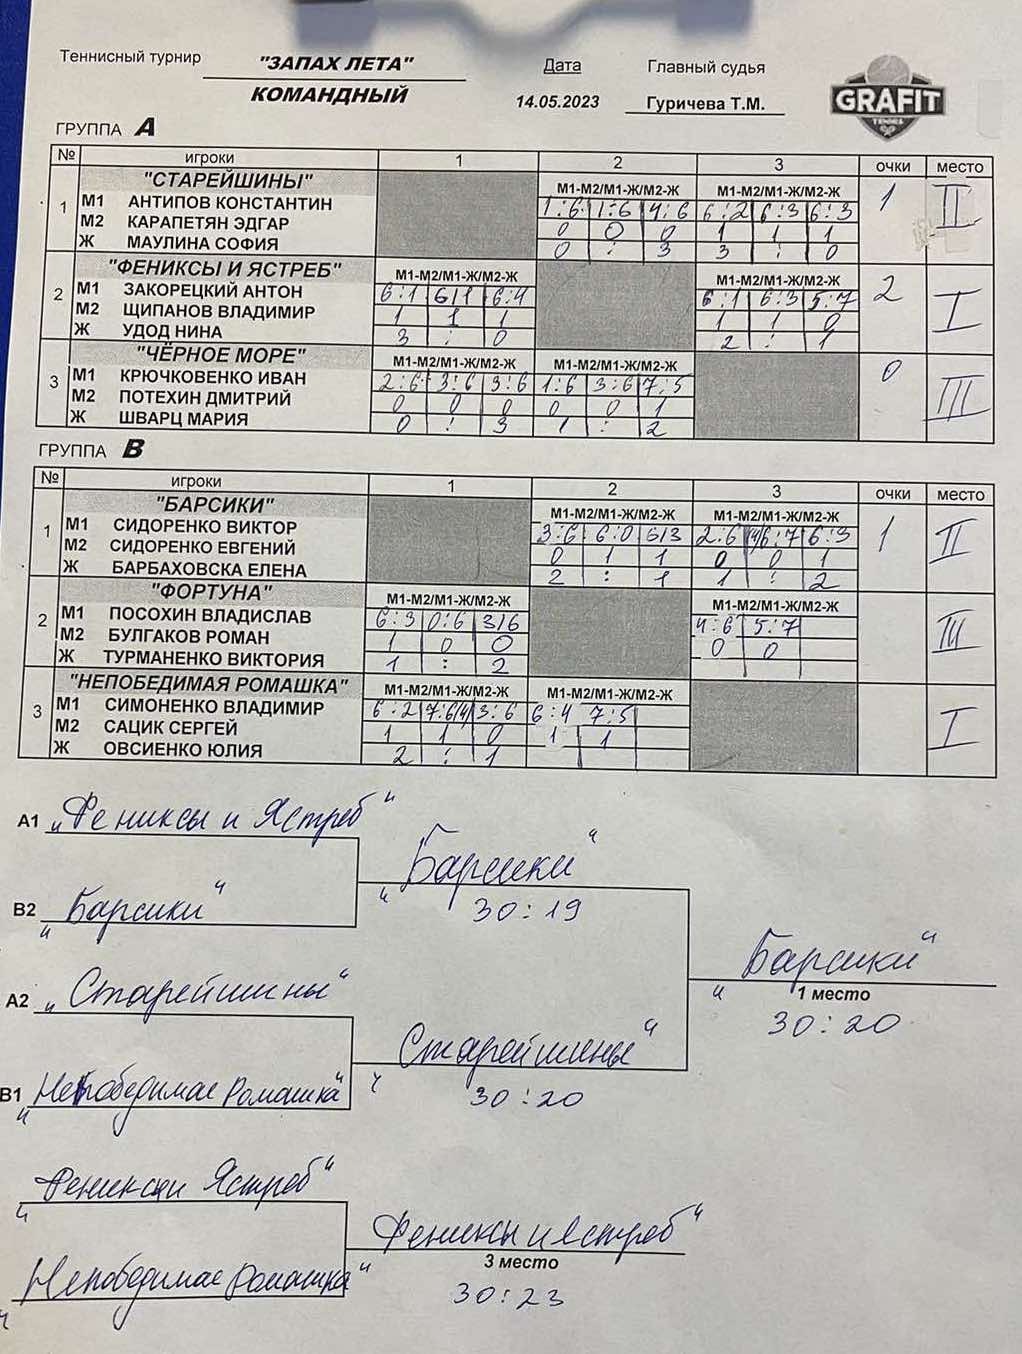 Теннисный турнир "ЗАПАХ ЛЕТА" Дата Главный судья
КОМАНДНЫЙ 14.05.2023 Гуричева Т.М.
GRAFIT
TENNIS
ГРУППА А
№ игроки 1 2 3 очки место
1 "СТАРЕЙШИНЫ" М1-М2/М1-Ж/М2-Ж М1-М2/М1-Ж/М2-Ж 1 II
М1 АНТИПОВ КОНСТАНТИН 1:6 1:6 4:6 6:2 6:3 6:3
М2 КАРАПЕТЯН ЭДГАР 0 0 0 1 1 1
Ж МАУЛИНА СОФИЯ 0 : 3 3 : 0
2 "ФЕНИКСЫ И ЯСТРЕБ" М1-М2/М1-Ж/М2-Ж М1-М2/М1-Ж/М2-Ж 2 I
М1 ЗАКОРЕЦКИЙ АНТОН 6:1 6/1 6:4 6:1 6:3 5:7
М2 ЩИПАНОВ ВЛАДИМИР 1 1 1 1 1 0
Ж УДОД НИНА 3 : 0 2 : 1
3 "ЧЁРНОЕ МОРЕ" М1-М2/М1-Ж/М2-Ж М1-М2/М1-Ж/М2-Ж 0 III
М1 КРЮЧКОВЕНКО ИВАН 2:6 3:6 3:6 1:6 3:6 7:5
М2 ПОТЕХИН ДМИТРИЙ 0 0 0 0 0 1
Ж ШВАРЦ МАРИЯ 0 : 3 1 : 2
ГРУППА В
№ игроки 1 2 3 очки место
1 "БАРСИКИ" М1-М2/М1-Ж/М2-Ж М1-М2/М1-Ж/М2-Ж 1 II
М1 СИДОРЕНКО ВИКТОР 3:6 6:0 6/3 2:6 (4)6:7 6:3
М2 СИДОРЕНКО ЕВГЕНИЙ 0 1 1 0 0 1
Ж БАРБАХОВСКА ЕЛЕНА 2 : 1 1 : 2
2 "ФОРТУНА" М1-М2/М1-Ж/М2-Ж М1-М2/М1-Ж/М2-Ж III
М1 ПОСОХИН ВЛАДИСЛАВ 6:3 0:6 3/6 4:6 5:7
М2 БУЛГАКОВ РОМАН 1 0 0 0 0
Ж ТУРМАНЕНКО ВИКТОРИЯ 1 : 2
3 "НЕПОБЕДИМАЯ РОМАШКА" М1-М2/М1-Ж/М2-Ж М1-М2/М1-Ж/М2-Ж I
М1 СИМОНЕНКО ВЛАДИМИР 6:2 7:6(4) 3:6 6:4 7:5
М2 САЦИК СЕРГЕЙ 1 1 0 1 1
Ж ОВСИЕНКО ЮЛИЯ 2 : 1
А1 „Фениксы и Ястреб“
„Барсики“
30:19
В2 „Барсики“
„Барсики“
1 место
30:20
А2 „Старейшины“
„Старейшины“
30:20
В1 „Непобедимая Ромашка“
„Фениксы и Ястреб“
„Фениксы и Ястреб“
3 место
30:23
„Непобедимая Ромашка“